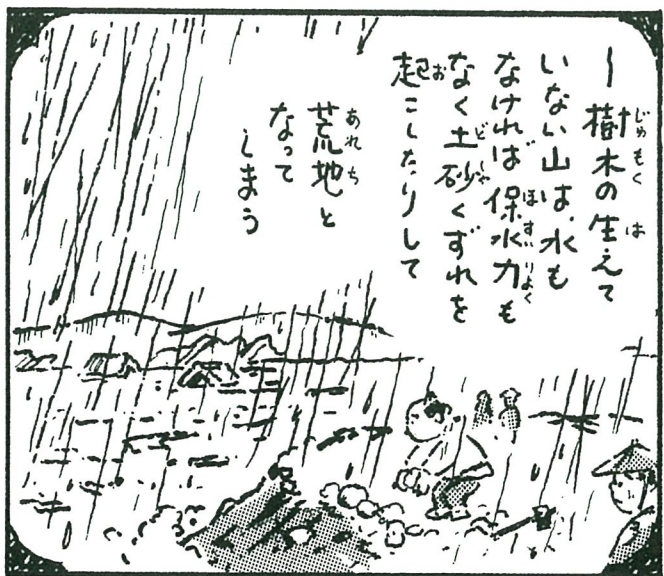 〜樹木の生えて
いない山は、水も
なければ保水力も
なく土砂くずれを
起こしたりして
荒地と
なって
しまう